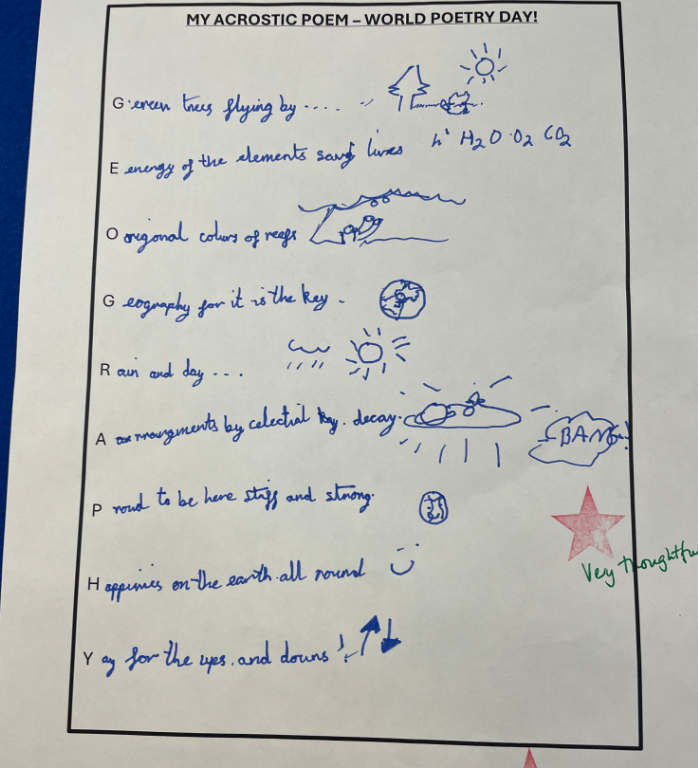 MY ACROSTIC POEM – WORLD POETRY DAY!
Green trees flying by ....
h' H2O O2 CO2
E energy of the elements save lives
O origonal colurs of reefs
Geography for it is the key.
Rain and day ...
A arrangments by celestial key. decay.
BANG!
Proud to be here stiff and strong.
Very thoughtfu
Happines on the earth all round
Yay for the ups. and downs !